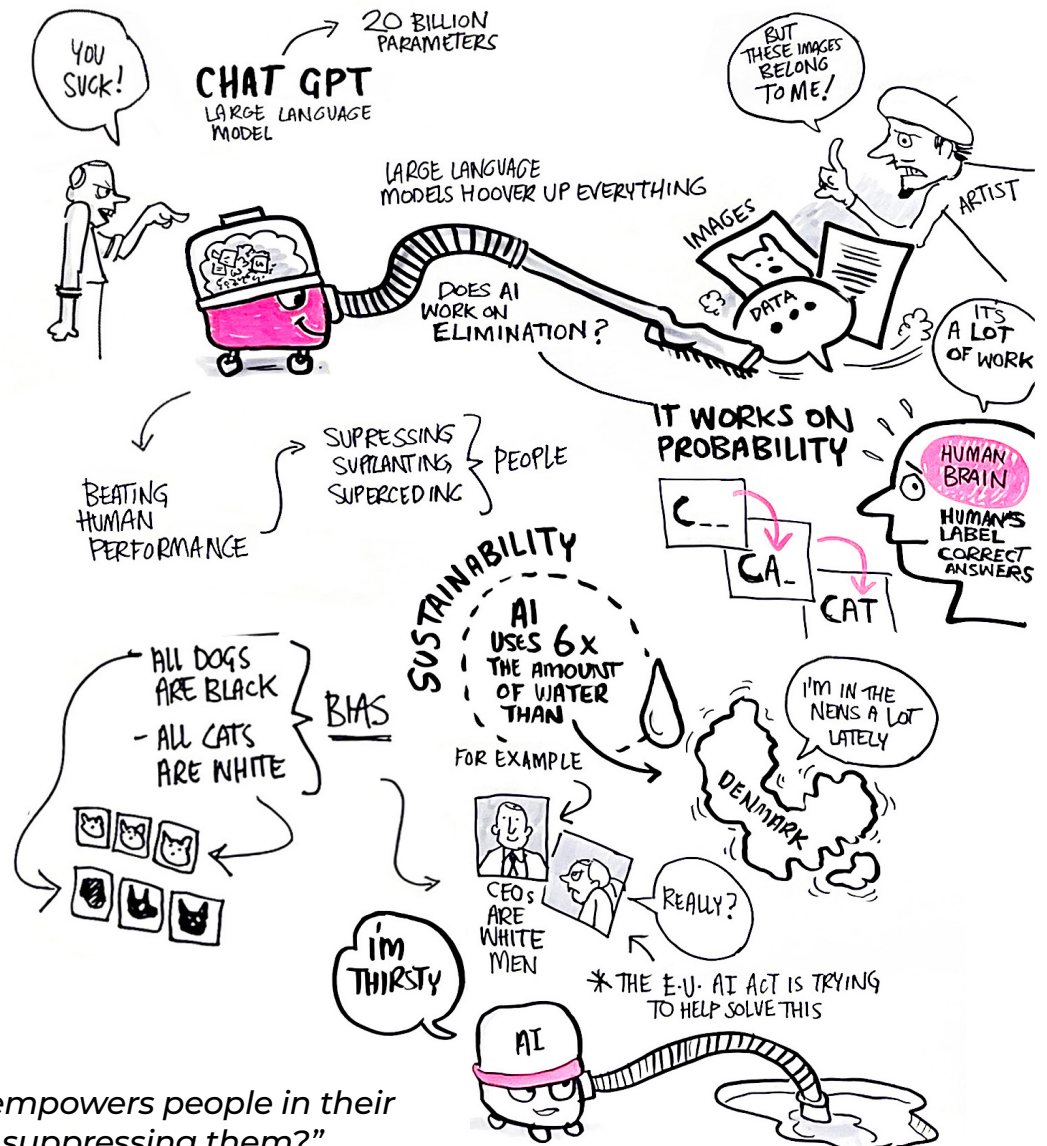 YOU
SUCK!
20 BILLION
PARAMETERS
CHAT GPT
LARGE LANGUAGE
MODEL
BUT
THESE IMAGES
BELONG
TO ME!
ARTIST
LARGE LANGUAGE
MODELS HOOVER UP EVERYTHING
IMAGES
DATA
DOES AI
WORK ON
ELIMINATION?
IT'S
A LOT
OF WORK
IT WORKS ON
PROBABILITY
C__
CA_
CAT
HUMAN
BRAIN
HUMAN'S
LABEL
CORRECT
ANSWERS
BEATING
HUMAN
PERFORMANCE
SUPRESSING
SUPLANTING,
SUPERCEDING
PEOPLE
SUSTAINABILITY
AI
USES 6X
THE AMOUNT
OF WATER
THAN
DENMARK
I'M IN THE
NEWS A LOT
LATELY
- ALL DOGS
ARE BLACK
- ALL CATS
ARE WHITE
BIAS
FOR EXAMPLE
CEOs
ARE
WHITE
MEN
REALLY?
* THE E.U. AI ACT IS TRYING
TO HELP SOLVE THIS
I'M
THIRSTY
AI
empowers people in their
suppressing them?"